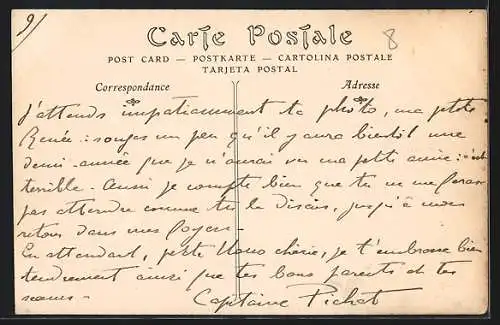 91
8
Carte Postale
POST CARD — POSTKARTE — CARTOLINA POSTALE
TARJETA POSTAL
Correspondance
Adresse
J'attends impatiemment ta photo, ma petite
Renée : songes un peu qu'il y aura bientôt une
demi-année que je n'aurai vu ma petite amie : c'est
terrible - Aussi je compte bien que tu ne me feras
pas attendre comme tu le disais, jusqu'à mon
retour dans mes foyers -
En attendant, petite chérie, je t'embrasse bien
tendrement ainsi que tes bons parents et tes
soeurs -
Capitaine Pichot